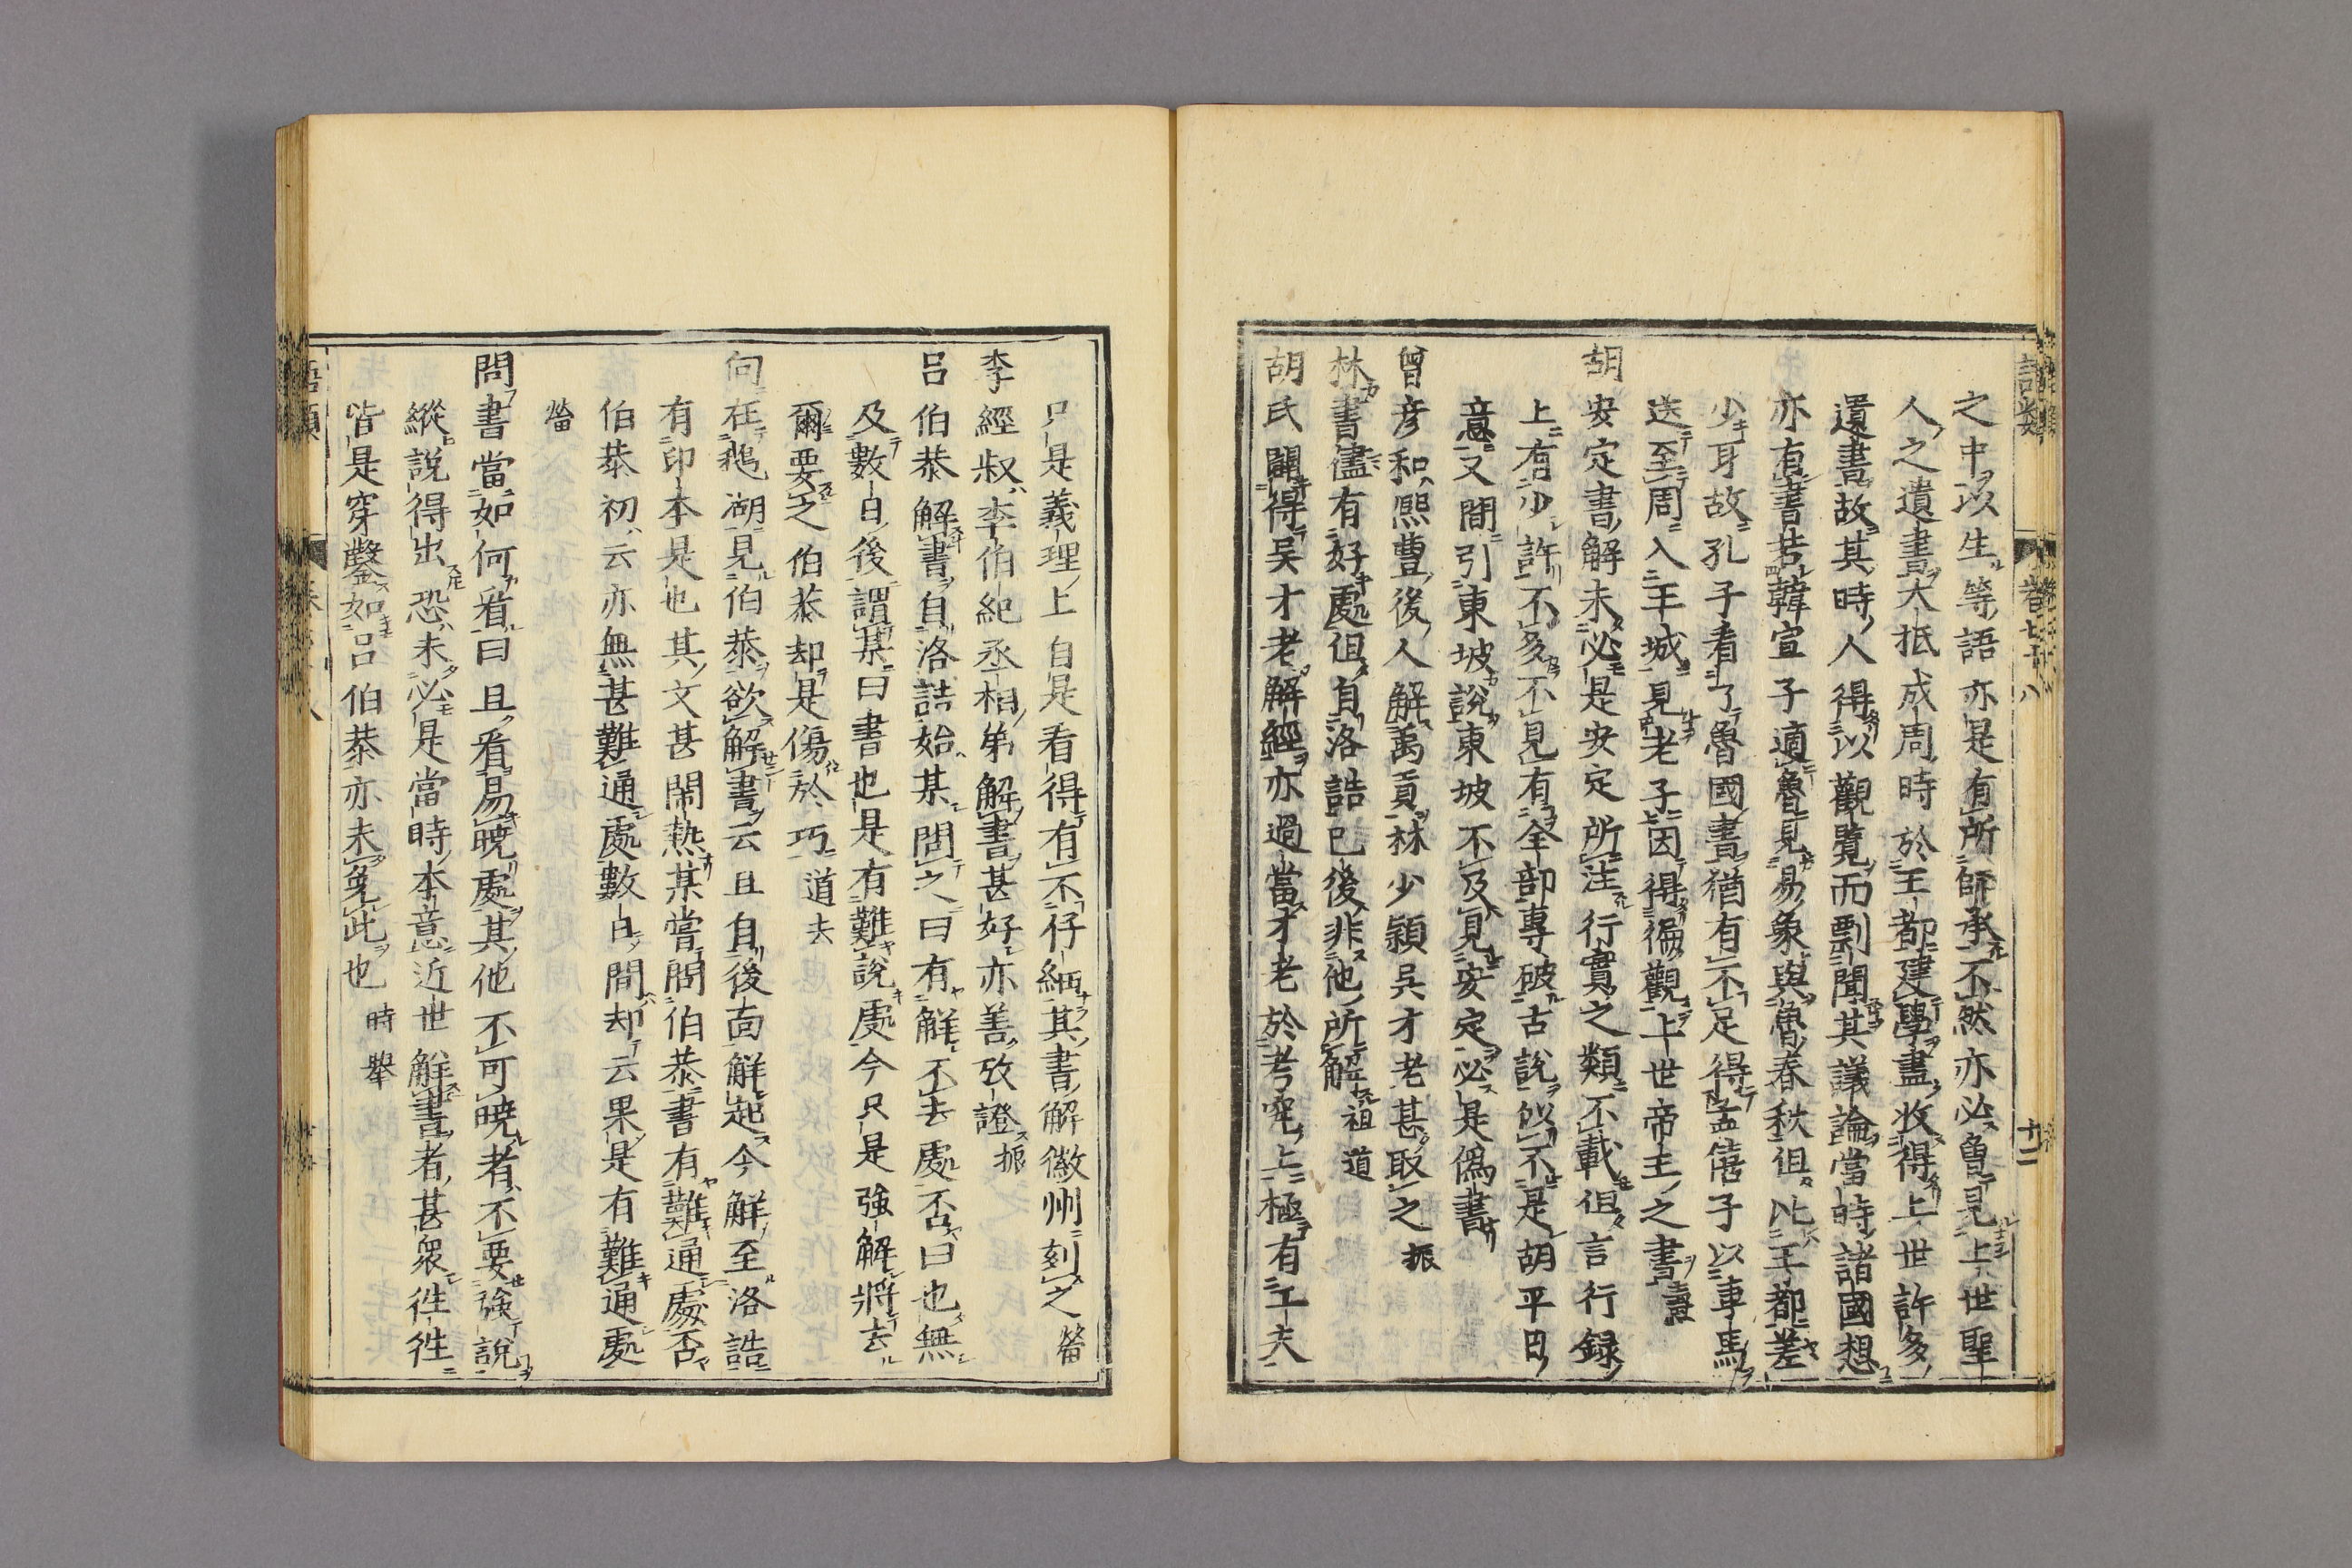 之中以生等語亦是有所師承不然亦必魯見上世聖
人之遺書大抵成周時於王都建學盡收得上世許多
遺書故其時人得以觀覽而剽聞其議論當時諸國想
亦有書若韓宣子適魯見易象與魯春秋但比王都差
少耳故孔子看了魯國書猶有不足得孟僖子以車馬
送至周入王城見老子因得徧觀上世帝王之書 壽
胡安定書解未必是安定所注行實之類不載但言行録
上有少許不多不見有全部專破古說似不是胡平日
意又間引東坡說東坡不及見安定必是僞書
曾彦和熙豊後人解禹貢林少頴吳才老甚取之 振
林書儘有好處但自洛誥已後非他所解 祖道
胡氏闢得吳才老解經亦過當才老於考究上極有工夫
只是義理上自是看得有不仔細其書解徽州刻之 㽦
李經叔李伯紀丞相弟解書甚好亦善攷證 振
呂伯恭解書自洛誥始某問之曰有解不去處否曰也無
及數日後謂某曰書也是有難說處今只是強解將去
爾要之伯恭却是傷於巧 道夫
向在鵝湖見伯恭欲解書云且自後面解起今解至洛誥
有印本是也其文甚閙熱某嘗問伯恭書有難通處否
伯恭初云亦無甚難通處數日間却云果是有難通處
㽦
問書當如何看曰且看易曉處其他不可曉者不要強說
縱說得出恐未必是當時本意近世解書者甚衆徃徃
皆是穿鑿如呂伯恭亦未免此也 時舉